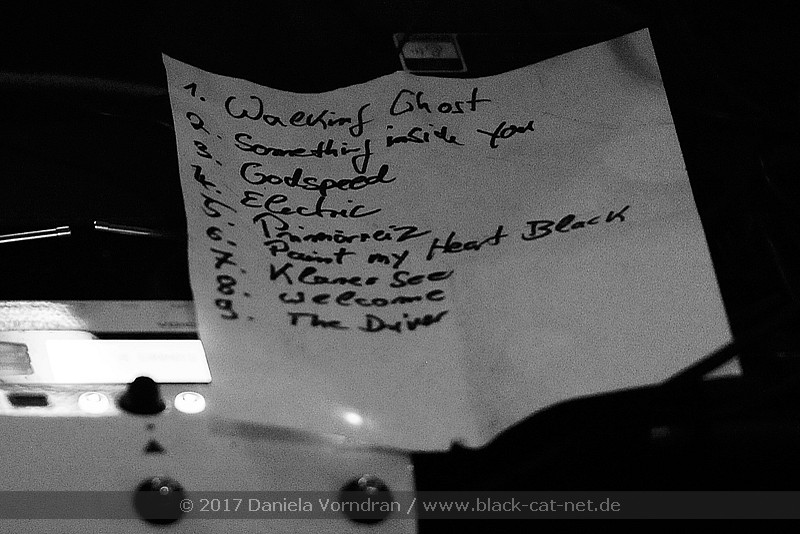 1. Walking Ghost
2. Something inside you
3. Godspeed
4. Electric
5. Primärreiz
6. Paint my Heart Black
7. Klarer See
8. Welcome
9. The Driver
© 2017 Daniela Vorndran / www.black-cat-net.de